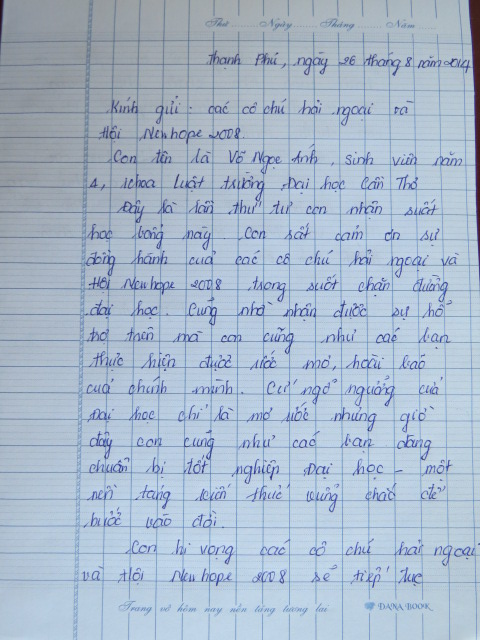 Thứ ........ Ngày ........ Tháng ........ Năm ........
Thạnh Phú, ngày 26 tháng 8 năm 2014
Kính gửi: các cô chú hải ngoại và
Hội Newhope 2008.
Con tên là Võ Ngọc Ánh, sinh viên năm
4, khoa luật trường Đại học Cần Thơ
Đây là lần thứ tư con nhận suất
học bổng này. Con rất cám ơn sự
đồng hành của các cô chú hải ngoại và
Hội Newhope 2008 trong suốt chặn đường
đại học. Cũng nhờ nhận được sự hổ
trợ trên mà con cũng như các bạn
thực hiện được ước mơ, hoài bảo
của chính mình. Cứ ngỡ ngưởng cửa
Đại học chỉ là mơ ước nhưng giờ
đây con cũng như các bạn đang
chuẩn bị tốt nghiệp Đại học - một
nền tảng kiến thức vững chắc để
bước vào đời.
Con hi vọng các cô chú hải ngoại
và Hội Newhope 2008 sẽ tiếp tục
Trang vở hôm nay nền tảng tương lai DANA BOOK